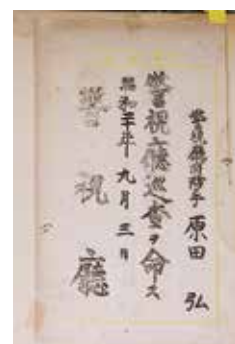 警視廳消防手 原田 弘
警視廳巡査ヲ命ス
昭和二十年九月三日
警視廳